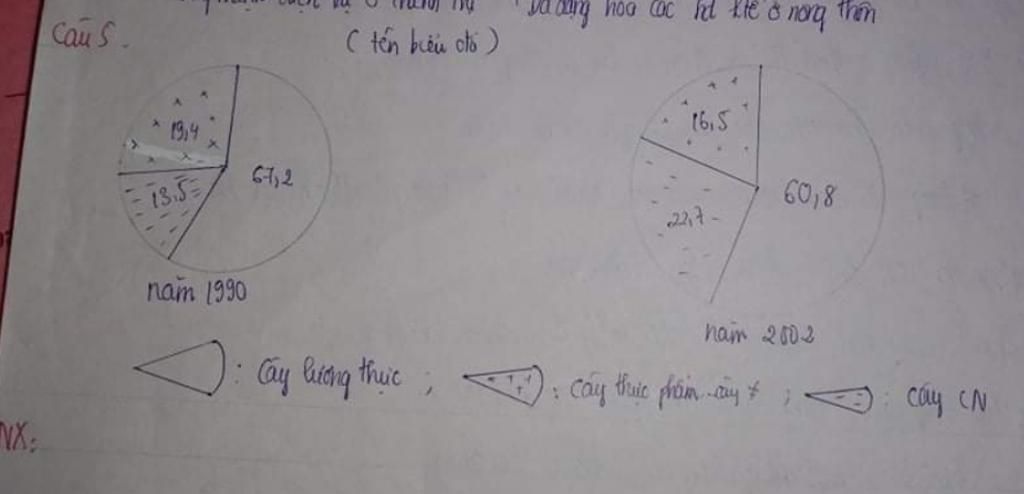 đa dạng hóa các hđ ktế ở nông thôn
Câu 5.
(tên biểu đồ)
19,4
67,2
13,5
năm 1990
16,5
60,8
22,7
năm 2002
: Cây lương thực ; : Cây thực phẩm cây ≠ ; : Cây CN
NX: